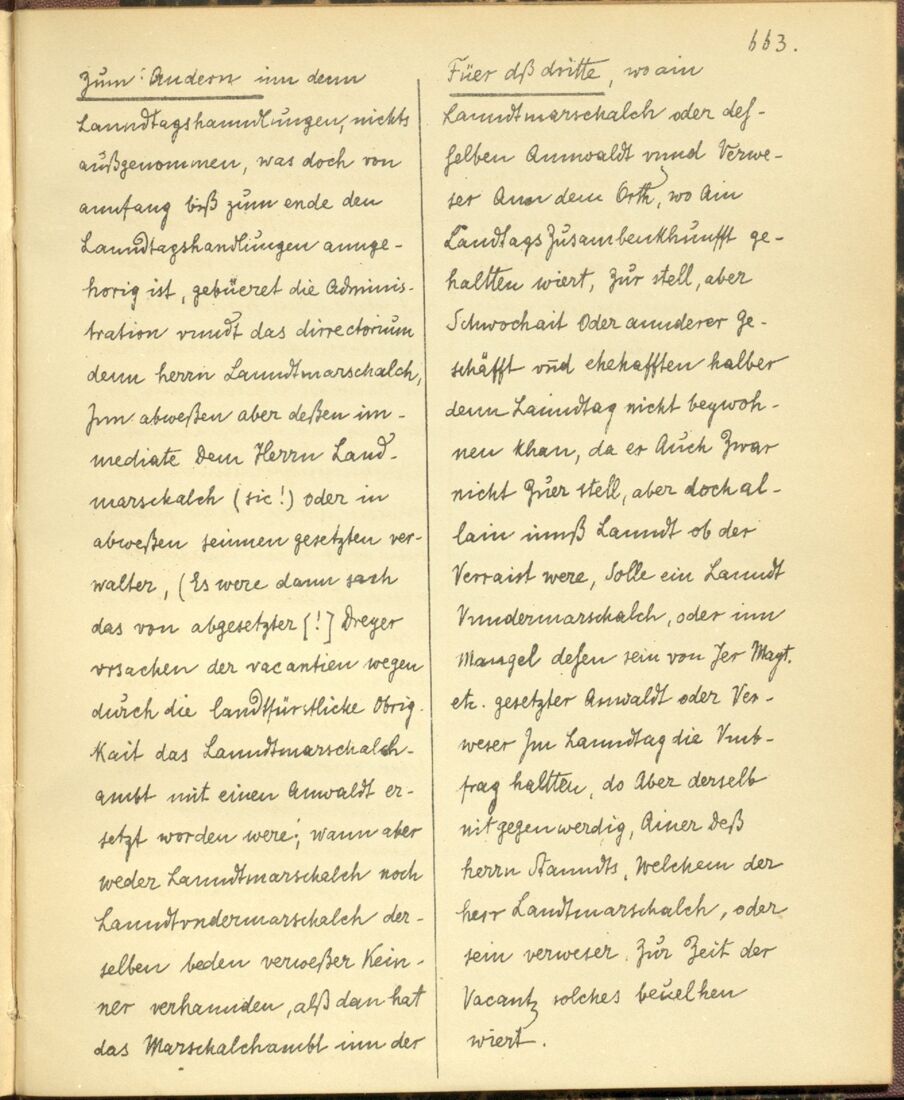 663.
Zum Andern inn denn
Lanndtagshanndlungen, nichts
außgenommen, was doch von
annfang biß zum ende den
Lanndtagshandlungen annge-
horig ist, gebüeret die Adminis-
tration vnndt das dirrectorium
denn herrn Lanndtmarschalch,
Inn abweßen aber deßen im-
mediate dem Herrn Land-
marschalch (sic!) oder in
abweßen seinnen gesetzten ver-
walter, (Es were dann sach
das von abgesetzter [!] Dreyer
vrsachen der vacantien wegen
durch die landtfürstliche Obrig-
Kait das Lanndtmarschalch-
ambt mit einen Anwaldt er-
setzt worden were; wann aber
weder Lanndtmarschalch noch
Lanndtvndermarschalch der-
selben beden verweßer Kein-
ner verhannden, alß dan hat
das Marschalchambt inn der
Füer dß dritte, wo ain
Lanndtmarschalch oder des-
selben Annwaldt vnnd Verwe-
ser Ann dem Orth, wo Ain
Landtags Zusambenkhunfft ge-
haltten wiert, Zur stell, aber
Schwochait Oder annderer Ge-
schäfft vnd ehehafften halber
denn Lanndtag nicht beywoh-
nen khan, da er Auch Zwar
nicht Zuer stell, aber doch al-
lain innß Lanndt ob der
Verraist were, Solle ein Lanndt
Vnndermarschalch, oder inn
Mangel desen sein von Jer Mayt.
etc. gesetzter Anwaldt oder Ver-
weser Im Lanndtag die Vmb-
frag haltten, do Aber derselb
nit gegenwerdig, Ainer Deß
herrn Stanndts, Welchem der
herr Landtmarschalch, oder
sein verweser Zur Zeit der
Vacantz solches beuelhen
wiert.